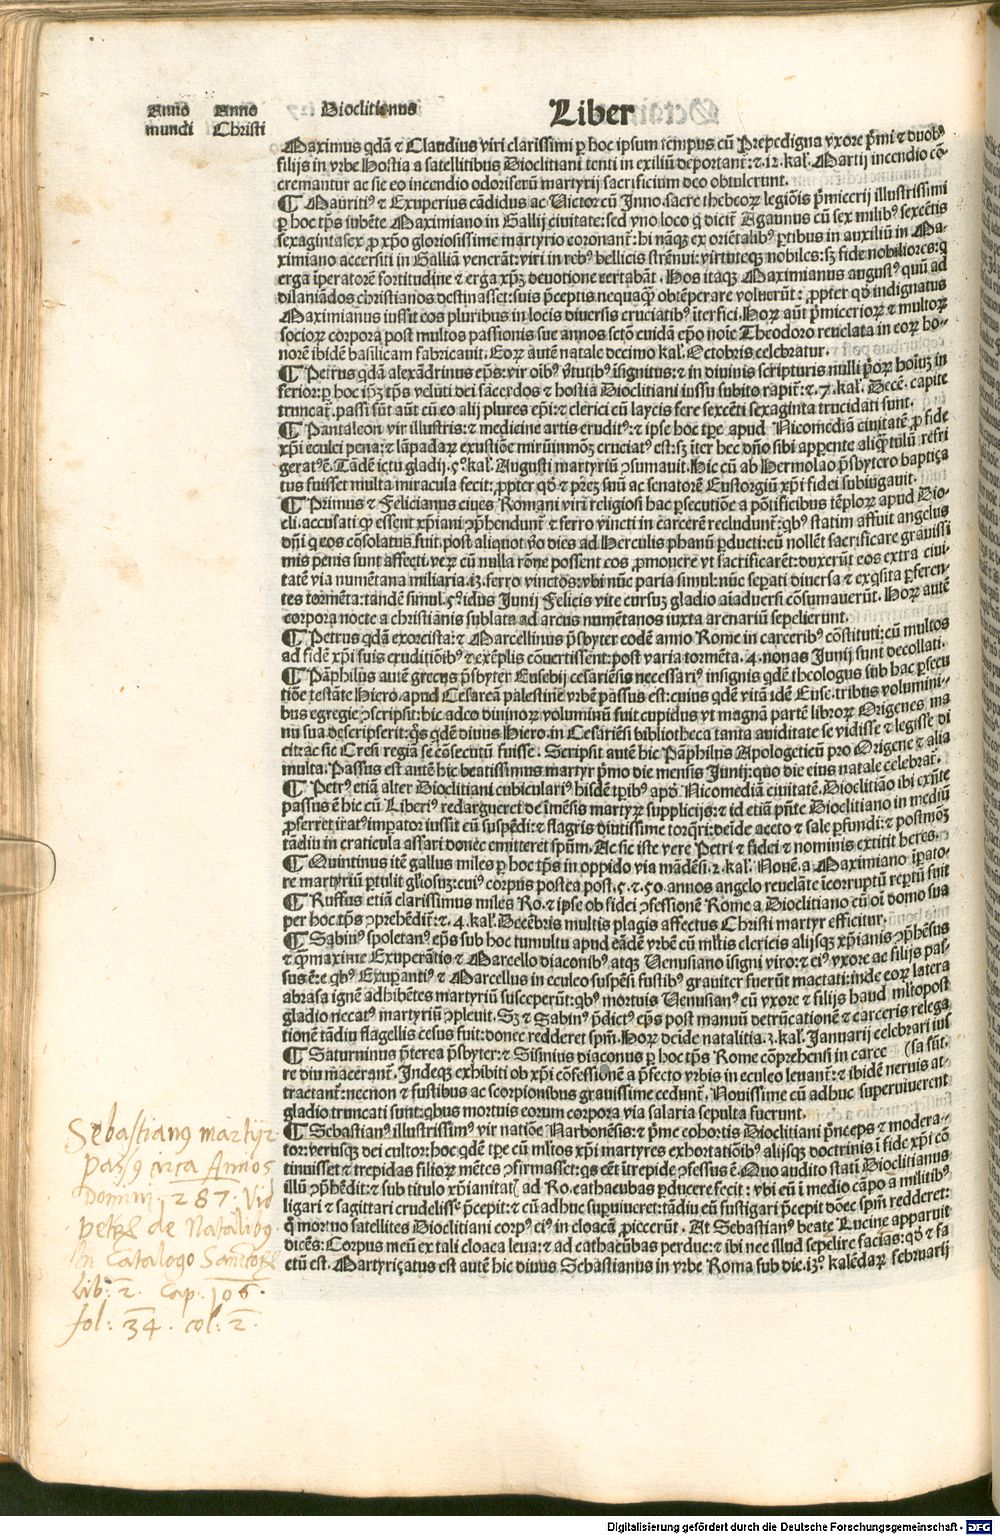 Anno Anno Dioclitionus Liber
mundi Christi
Maximus qdã ⁊ Claudius viri clarissimi ꝑ hoc ipsum tempus cũ Prepedigna vxore p̃mi ⁊ duobꝰ
filijs in vrbe hostia a satellitibus Diocliani tenti in exiliũ deportant᷑:⁊.12.kal̃.Martij incendio cõ-
cremantur ac sic eo incendio odoriferũ martyrij sacrificium deo obtulerunt.
¶ Mauritiꝰ ⁊ Exuperius cãdidus ac Victor cũ Inno.sacre thebeoꝝ legiõis p̃micerij illustrissimi
ꝑ hoc tp̃s iubẽte Maximiano in Gallij ciuitate:sed vno loco q̃ dicit᷑ Agaunus cũ sex milibꝰ sexcẽtis
sexagintasex ꝓ xp̃o gloriosissime martyrio coronant᷑:hi nãqꝫ ex oriẽtalibꝰ ꝑtibus in auxiliũ in Ma-
ximiano accersiti in Galliã venerãt:viri in rebꝰ bellicis strẽnui:virtuteqꝫ nobiles:sꝫ fide nobiliores:q̃
erga ĩperatorẽ fortitudine ⁊ erga xp̃ꝫ deuotione certabãt. Hos itaqꝫ Maximianus augustꝰ quũ ad
dilaniãdos christianos destinasset:suis p̃ceptis nequaq̃ꝫ obtẽperare voluerũt: ꝓpter qð indignatus
Maximianus iussit eos pluribus in locis diuersis cruciatibꝰ ĩterfici.Hoꝝ aũt p̃micerioꝝ ⁊ multoꝝ
socioꝝ corpora post multos passionis sue annos scto᷑ cuidã ep̃o noĩe Theodoro reuelata in eoꝝ ho-
norẽ ibidẽ basilicam fabricauit.Eoꝝ autẽ natale decimo kal̃.Octobris celebratur.
¶ Petrus qdã alexãdrinus ep̃s:vir oĩbꝰ ṽtutibꝰ ĩsignitus:⁊ in diuinis scripturis nulli p̃oꝝ hoĩuꝫ in
ferior:ꝑ hoc ip̃ꝫ tp̃s veluti dei sacerdos ⁊ hostia Diocliani iussu subito rapit᷑:⁊.7.kal̃.Decẽ.capite
truncat᷑.passi sũt aũt cũ eo alij plures ep̃i:⁊ clerici cũ laycis fere sexcẽti sexaginta trucidati sunt.
¶ Pantaleon vir illustris:⁊ medicine artis eruditꝰ:⁊ ipse hoc tp̃e apud Nicomediã ciuitatẽ ꝓ fide
xp̃i eculei pena:⁊ lãpadaꝝ exustiõe mirũimmoꝫ cruciatꝰ est:sꝫ ĩter hec dño sibi apꝑente aliq̃tulũ refri
geratꝰẽ.Tãdẽ ictu gladij.5ꝰ.kal̃.Augusti martyriũ ↄsumauit.Hic cũ ab Hermolao p̃sbytero baptiça
tus fuisset multa miracula fecit:ꝓpter qð ⁊ p̃reꝫ suũ ac senatorẽ Eustorgiũ xp̃i fidei subiugauit.
¶ Primus ⁊ Felicianus ciues Romani viri religiosi hac ꝑsecutiõe a põtificibus tẽploꝝ apud Dio-
cli.accusati qꝫ essent xp̃iani ↄp̃hendunt᷑ ⁊ ferro vincti in carcerẽ recludunt᷑:qbꝰ statim affuit angelus
dñi q̃ eos cõsolatus fuit.post aliquot ṽo dies ad Herculis phanũ ꝑducti:cũ nollẽt sacrificare grauissi
mis penis sunt affecti.veꝝ cũ nulla rõne possent eos ꝓmouere vt sacrificarẽt:duxerũt eos extra ciui-
tatẽ via numẽtana miliaria.12.ferro vinctos:vbi nũc paria simul:nũc sepati diuersa ⁊ exq̃sita ꝑferen-
tes tormẽta:tandẽ simul.5ꝰ.idus Junij Felicis vite cursuꝫ gladio aĩaduersi cõsumauerũt.Hoꝝ autẽ
corpora nocte a christianis sublata ad arcus numẽtanos iuxta arenariũ sepelierunt.
¶ Petrus qdã exorcista:⁊ Marcellinus p̃sbyter eodẽ anno Rome in carceribꝰ cõstituti:cũ multos
ad fidẽ xp̃i suis eruditiõibꝰ ⁊ exẽplis cõuertissent:post varia tormẽta.4.nonas Junij sunt decollati.
¶ Pãphilus autẽ grecus p̃sbyter Eusebij cesariẽsis necessariꝰ insignis qdẽ theologus sub hac ꝑsecu
tiõe testãte Hiero.apud Cesareã palestinẽ vrbẽ passus est:cuius qdẽ vitã idẽ Euse.tribus volumini-
bus egregie ↄscripsit:hic adeo diuinoꝝ voluminũ fuit cupidus vt magnã partẽ libroꝝ Origenes ma
nu sua descripserit:q̃s qdẽ diuus Hiero.in Cesariẽsi bibliotheca tanta auiditate se vidisse ⁊ legisse di
cit:ac sic Cresi regiã se cõsecutũ fuisse. Scripsit autẽ hic Pãphilus Apologeticũ pro Origene ⁊ alia
multa.Passus est autẽ hic beatissimus martyr p̃mo die mensis Junij:quo die eius natale celebrat᷑.
¶ Petrꝰ etiã alter Diocliani cubiculariꝰ hisdẽ tp̃ibꝰ apð Nicomediã ciuitatẽ.Diocliano ibi exñte
passus ẽ hic cũ Liberiꝰ redargueret de ĩmẽsis martyrꝝ supplicijs:⁊ id etiã p̃nte Diocliano in mediũ
ꝓferret iratꝰ imperator iussit eũ suspẽdi:⁊ flagris diutissime torq̃ri:deĩde aceto ⁊ sale ꝑfundi:⁊ postmoꝫ
tãdiu in craticula assari donec emitteret spm̃.Ac sic iste vere Petri ⁊ fidei ⁊ nominis extitit heres.
¶ Quintinus itẽ gallus miles ꝑ hoc tp̃s in oppido via mãdẽsi.2.kal̃.Nouẽ.a Maximiano ĩpato-
re martyriũ ꝑtulit gl̃iosuꝫ:cuiꝰ corpus postea post.5.⁊.50.annos angelo reuelãte ĩcorruptũ reptũ fuit
¶ Ruffus etiã clarissimus miles Ro.⁊ ipse ob fidei ↄfessionẽ Rome a Diocliano cũ oĩ domo sua
per hoc tp̃s ↄprehẽdit᷑:⁊.4.kal̃.Decẽbris multis plagis affectus Christi martyr efficitur.
¶ Sabinꝰ spoletanꝰ ep̃s sub hoc tumultu apud eãdẽ vrbẽ cũ ml̃tis clericis alijsqꝫ xp̃ianis ↄp̃hẽsus
⁊ q̃ꝫmaxime Exuperãtis ⁊ Marcello diaconibꝰ.atqꝫ Uenusiano ĩsigni viro:⁊ eiꝰ vxore ac filijs pas-
sus ẽ:e qbꝰ Exupantiꝰ ⁊ Marcellus in eculeo suspẽsi fustibꝰ grauiter fuerũt mactati:inde eoꝝ latera
abrasa ignẽ adhibẽtes martyriũ susceperũt:qbꝰ mortuis Uenusianꝰ cũ vxore ⁊ filijs haud ml̃topost
gladio necatꝰ martyriũ ↄpleuit.Sꝫ ⁊ Sabinꝰ p̃dictꝰ ep̃s post manuũ detrũcationẽ ⁊ carceris relega
tionẽ tãdiu flagellis cesus fuit:donec redderet spm̃.Hoꝝ deĩde natalitia.3.kal̃.Januarij celebrari ius
¶ Saturninus p̃terea p̃sbyter:⁊ Sisinius diaconus ꝑ hoc tp̃s Rome cõprehensi in carce (sa sũt.
re diu macerant᷑.Indeqꝫ exhibiti ob xp̃i cõfessionẽ a p̃fecto vrbis in eculeo leuant᷑:⁊ ibidẽ neruis at-
tractant᷑:necnon ⁊ fustibus ac scorpionibus grauissime cedunt᷑.Nouissime cũ adhuc superuiuerent
gladio truncati sunt:qbus mortuis eorum corpora via salaria sepulta fuerunt.
¶ Sebastianꝰ illustrissimꝰ vir natiõe Narbonẽsis:⁊ p̃me cohortis Diocliani p̃nceps ⁊ modera-
tor:verusqꝫ dei cultor:hoc qdẽ tp̃e cũ ml̃tos xp̃i martyres exhortatiõibꝰ alijsqꝫ doctrinis ĩ fide xp̃i cõ
tinuisset ⁊ trepidas filioꝝ mẽtes ↄfirmasset:qs cẽt ĩtrepide ↄfessus ẽ.Quo audito stati Dioclitianus
illũ ↄp̃hẽdit:⁊ sub titulo xp̃ianitat᷑ ad Ro.cathacubas ꝑducere fecit: vbi eũ ĩ medio cãpo a militibꝰ
ligari ⁊ sagittari crudelisse p̃cepit:⁊ cũ adhuc supuiueret:tãdiu eũ fustigari p̃cepit dõec spm̃ redderet:
q̃ mortuo satellites Diocliani corpꝰ eiꝰ in cloacã ꝓiecerũt. At Sebastianꝰ beate Lucine apparuit
dicẽs:Corpus meũ ex tali cloaca leua:⁊ ad cathacũbas perduc:⁊ ibi nec illud sepelire facias:qð ⁊ fa
ctũ est.Martyriçatus est autẽ hic diuus Sebastianus in vrbe Roma sub die.13ꝰ.kalẽdaꝝ februarij
Sebastianꝰ martyr
passꝰ circa Annos
Domini. 287. Vid
petrũ de Natalibꝰ
In Catalogo Sanctoꝝ
Lib: 2. Cap. 106.
fol: 34. col: 2.
Digitalisierung gefördert durch die Deutsche Forschungsgemeinschaft - DFG